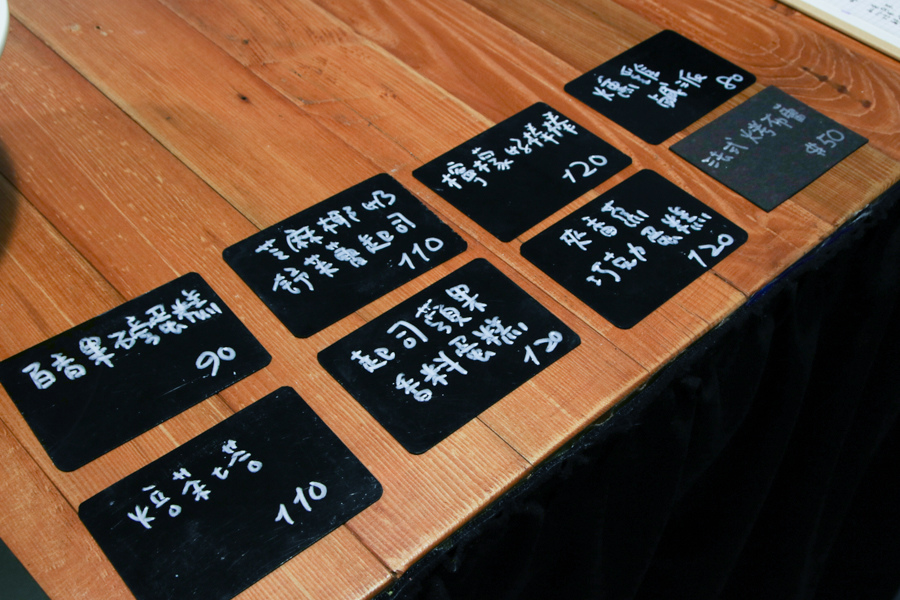 百香果磅蛋糕
90
焙茶塔
110
芝麻椰奶
舒芙蕾起司
110
起司蘋果
香料蛋糕
120
檸檬奶棒棒
120
巧克力蛋糕
120
燻雞
鹹派
80
法式烤布蕾
$50